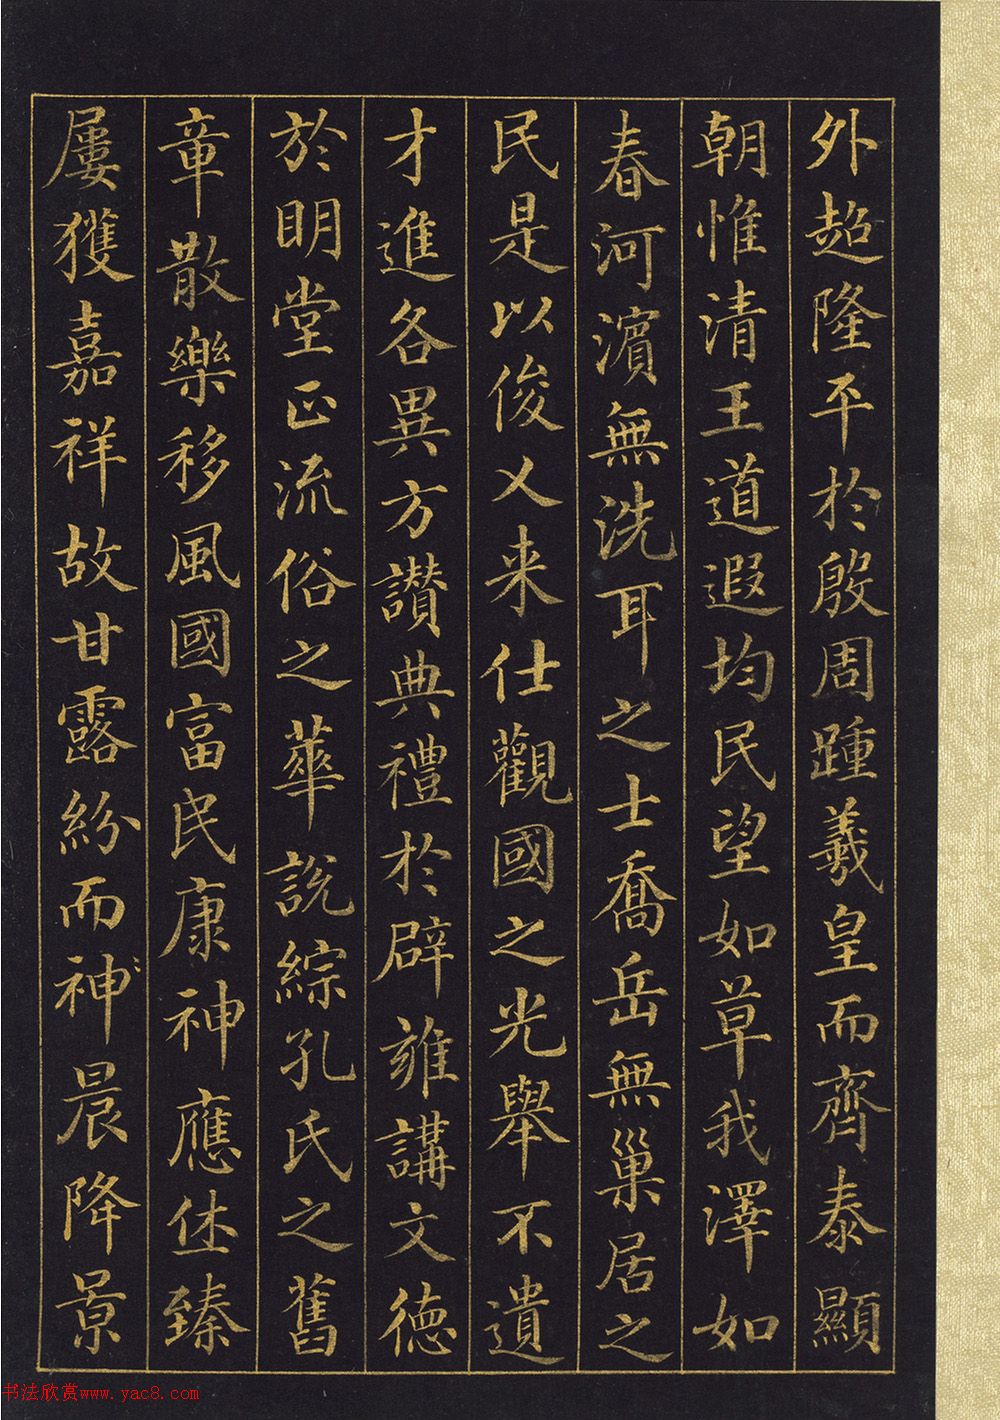 外超隆平於殷周踵羲皇而齊泰顯
朝惟清王道遐均民望如草我澤如
春河濵無洗耳之士喬岳無巢居之
民是以俊乂来仕觀國之光舉不遺
才進各異方讃典禮於辟雍講文德
於明堂正流俗之華說綜孔氏之舊
章散樂移風國富民康神應休臻
屢獲嘉祥故甘露紛而神晨降景
书法欣赏www.yac8.com